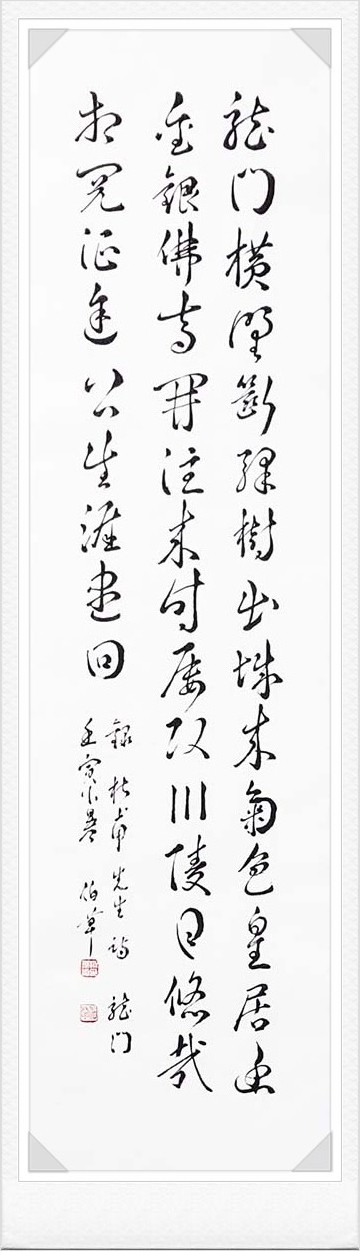 龍门橫野斷驛樹出城来氣色皇居近
金銀佛寺開往来时屡改川陵日悠哉
相閱征途上生涯盡回
錄杜甫先生詩 龍门
壬寅小暑 伯華